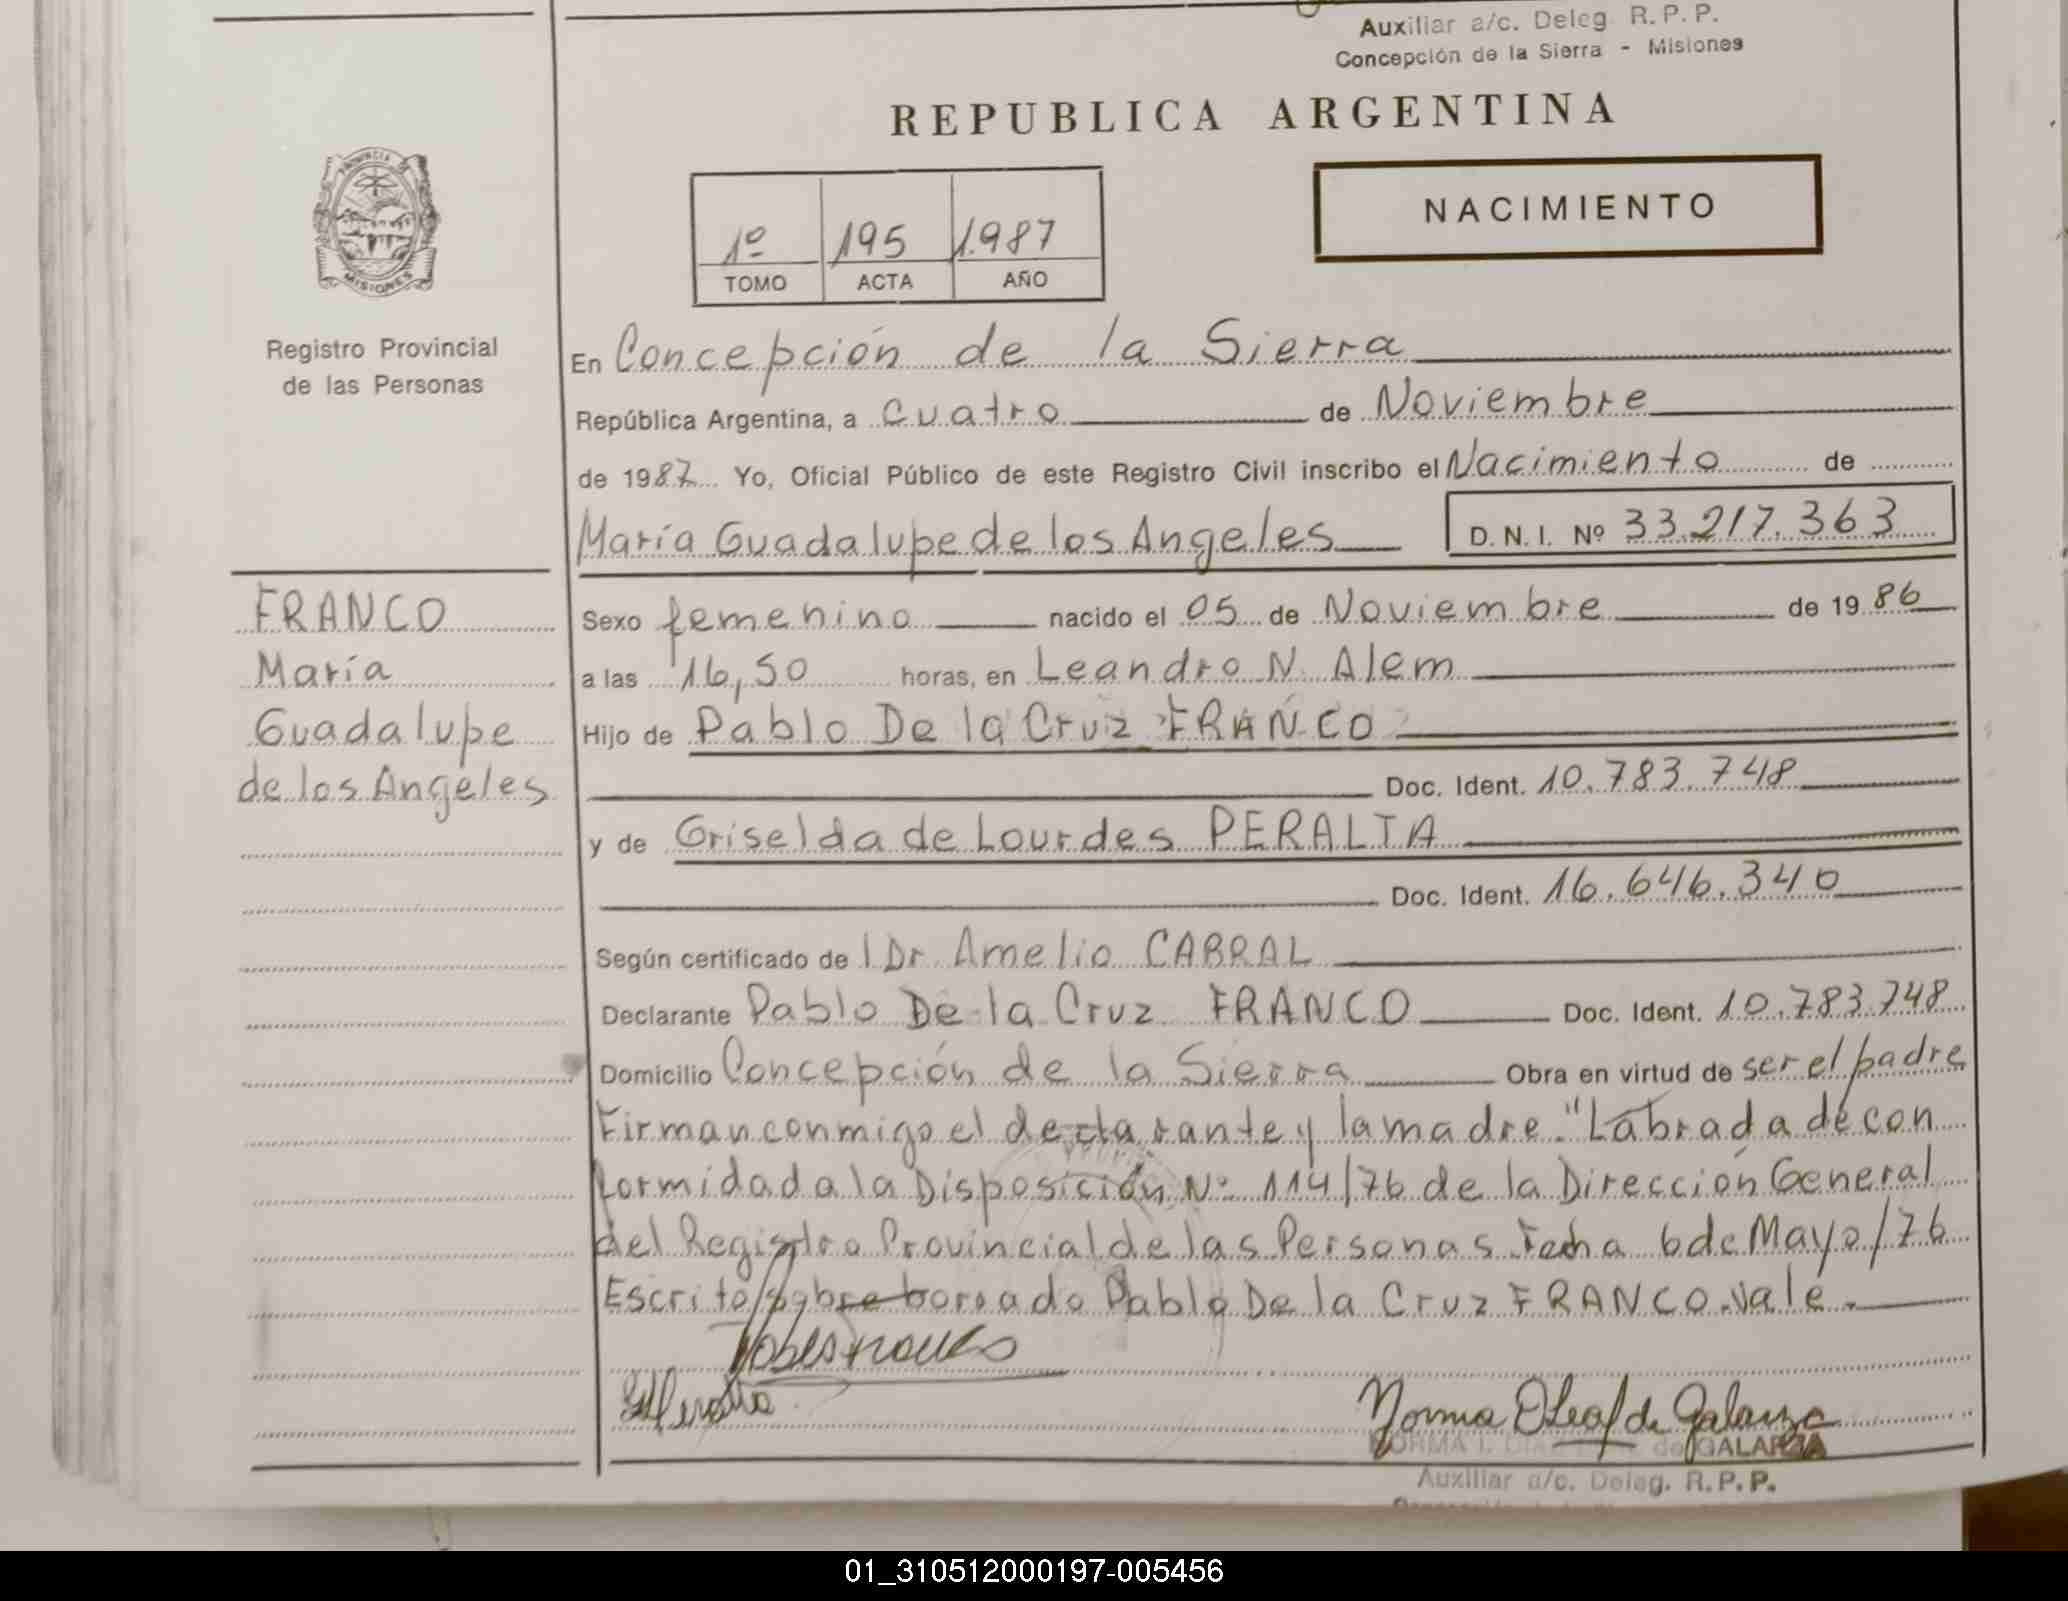 Auxiliar a/c. Deleg. R.P.P.
Concepción de la Sierra - Misiones
REPUBLICA ARGENTINA
PROVINCIA DE
MISIONES
NACIMIENTO
1º 195 1.987
TOMO ACTA AÑO
Registro Provincial
de las Personas
En Concepción de la Sierra
República Argentina, a cuatro de Noviembre
de 1987 Yo, Oficial Público de este Registro Civil inscribo el Nacimiento de
María Guadalupe de los Angeles D.N.I. Nº 33.217.363
FRANCO
María
Guadalupe
de los Angeles
Sexo femenino nacido el 05 de Noviembre de 1986
a las 16,50 horas, en Leandro N. Alem
Hijo de Pablo De la Cruz FRANCO
Doc. Ident. 10.783.748
y de Griselda de Lourdes PERALTA
Doc. Ident. 16.646.340
Según certificado del Dr. Amelio CABRAL
Declarante Pablo De la Cruz FRANCO Doc. Ident. 10.783.748
Domicilio Concepción de la Sierra Obra en virtud de ser el padre
Firman conmigo el declarante y la madre. "Labrada de con
formidad a la Disposición Nº 114/76 de la Dirección General
del Registro Provincial de las Personas Fecha 6 de Mayo/76
Escrito/sobre borrado Pablo De la Cruz FRANCO. Vale.
Norma de Galarza
NORMA I. de GALARZA
Auxiliar a/c. Deleg. R.P.P.
01_310512000197-005456